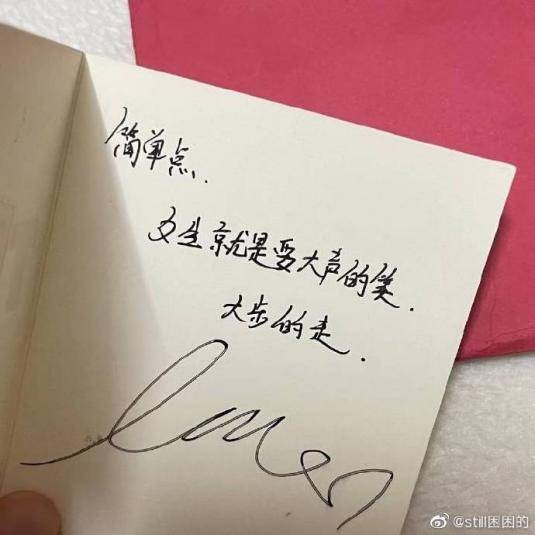 简单点.
女生就是要大声的笑.
大步的走.
@still困困的